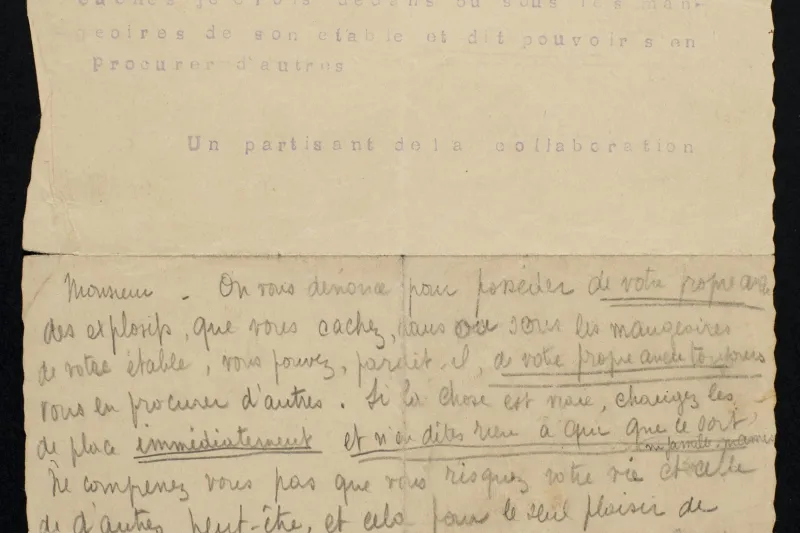 cachés je crois dedans ou sous les man-
geoires de son étable et dit pouvoir s'en
procurer d'autres
Un partisant de la collaboration
Monsieur - On vous dénonce pour posséder de votre propre aveu
des explosifs, que vous cachez, dans ou sous les mangeoires
de votre étable, vous pouvez, parait-il, de votre propre aveu toujours
vous en procurer d'autres. Si la chose est vraie, changez les
de place immédiatement et n'en dites rien à qui que ce soit,
Ne compenez vous pas que vous risquez votre vie et celle
de d'autres peut-être, et cela pour le seul plaisir de